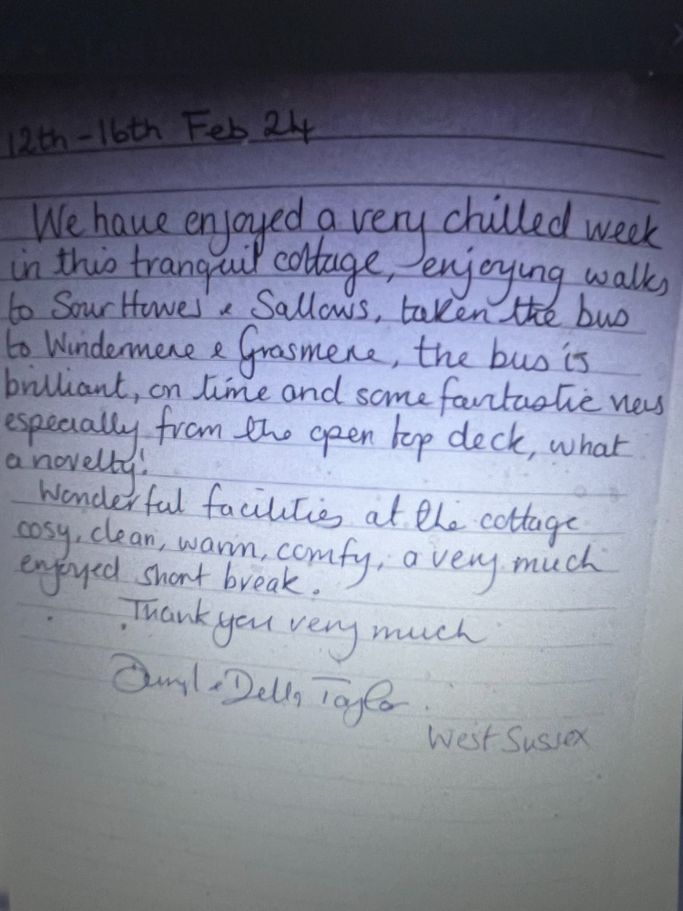 12th - 16th Feb 24
We have enjoyed a very chilled week
in this tranquil cottage, enjoying walks
to Sour Howes & Sallows, taken the bus
to Windermere & Grasmere, the bus is
brilliant, on time and some fantastic views
especially from the open top deck, what
a novelty!
Wonderful facilities at the cottage
cosy, clean, warm, comfy, a very much
enjoyed short break.
Thank you very much
& Della Taylor.
West Sussex